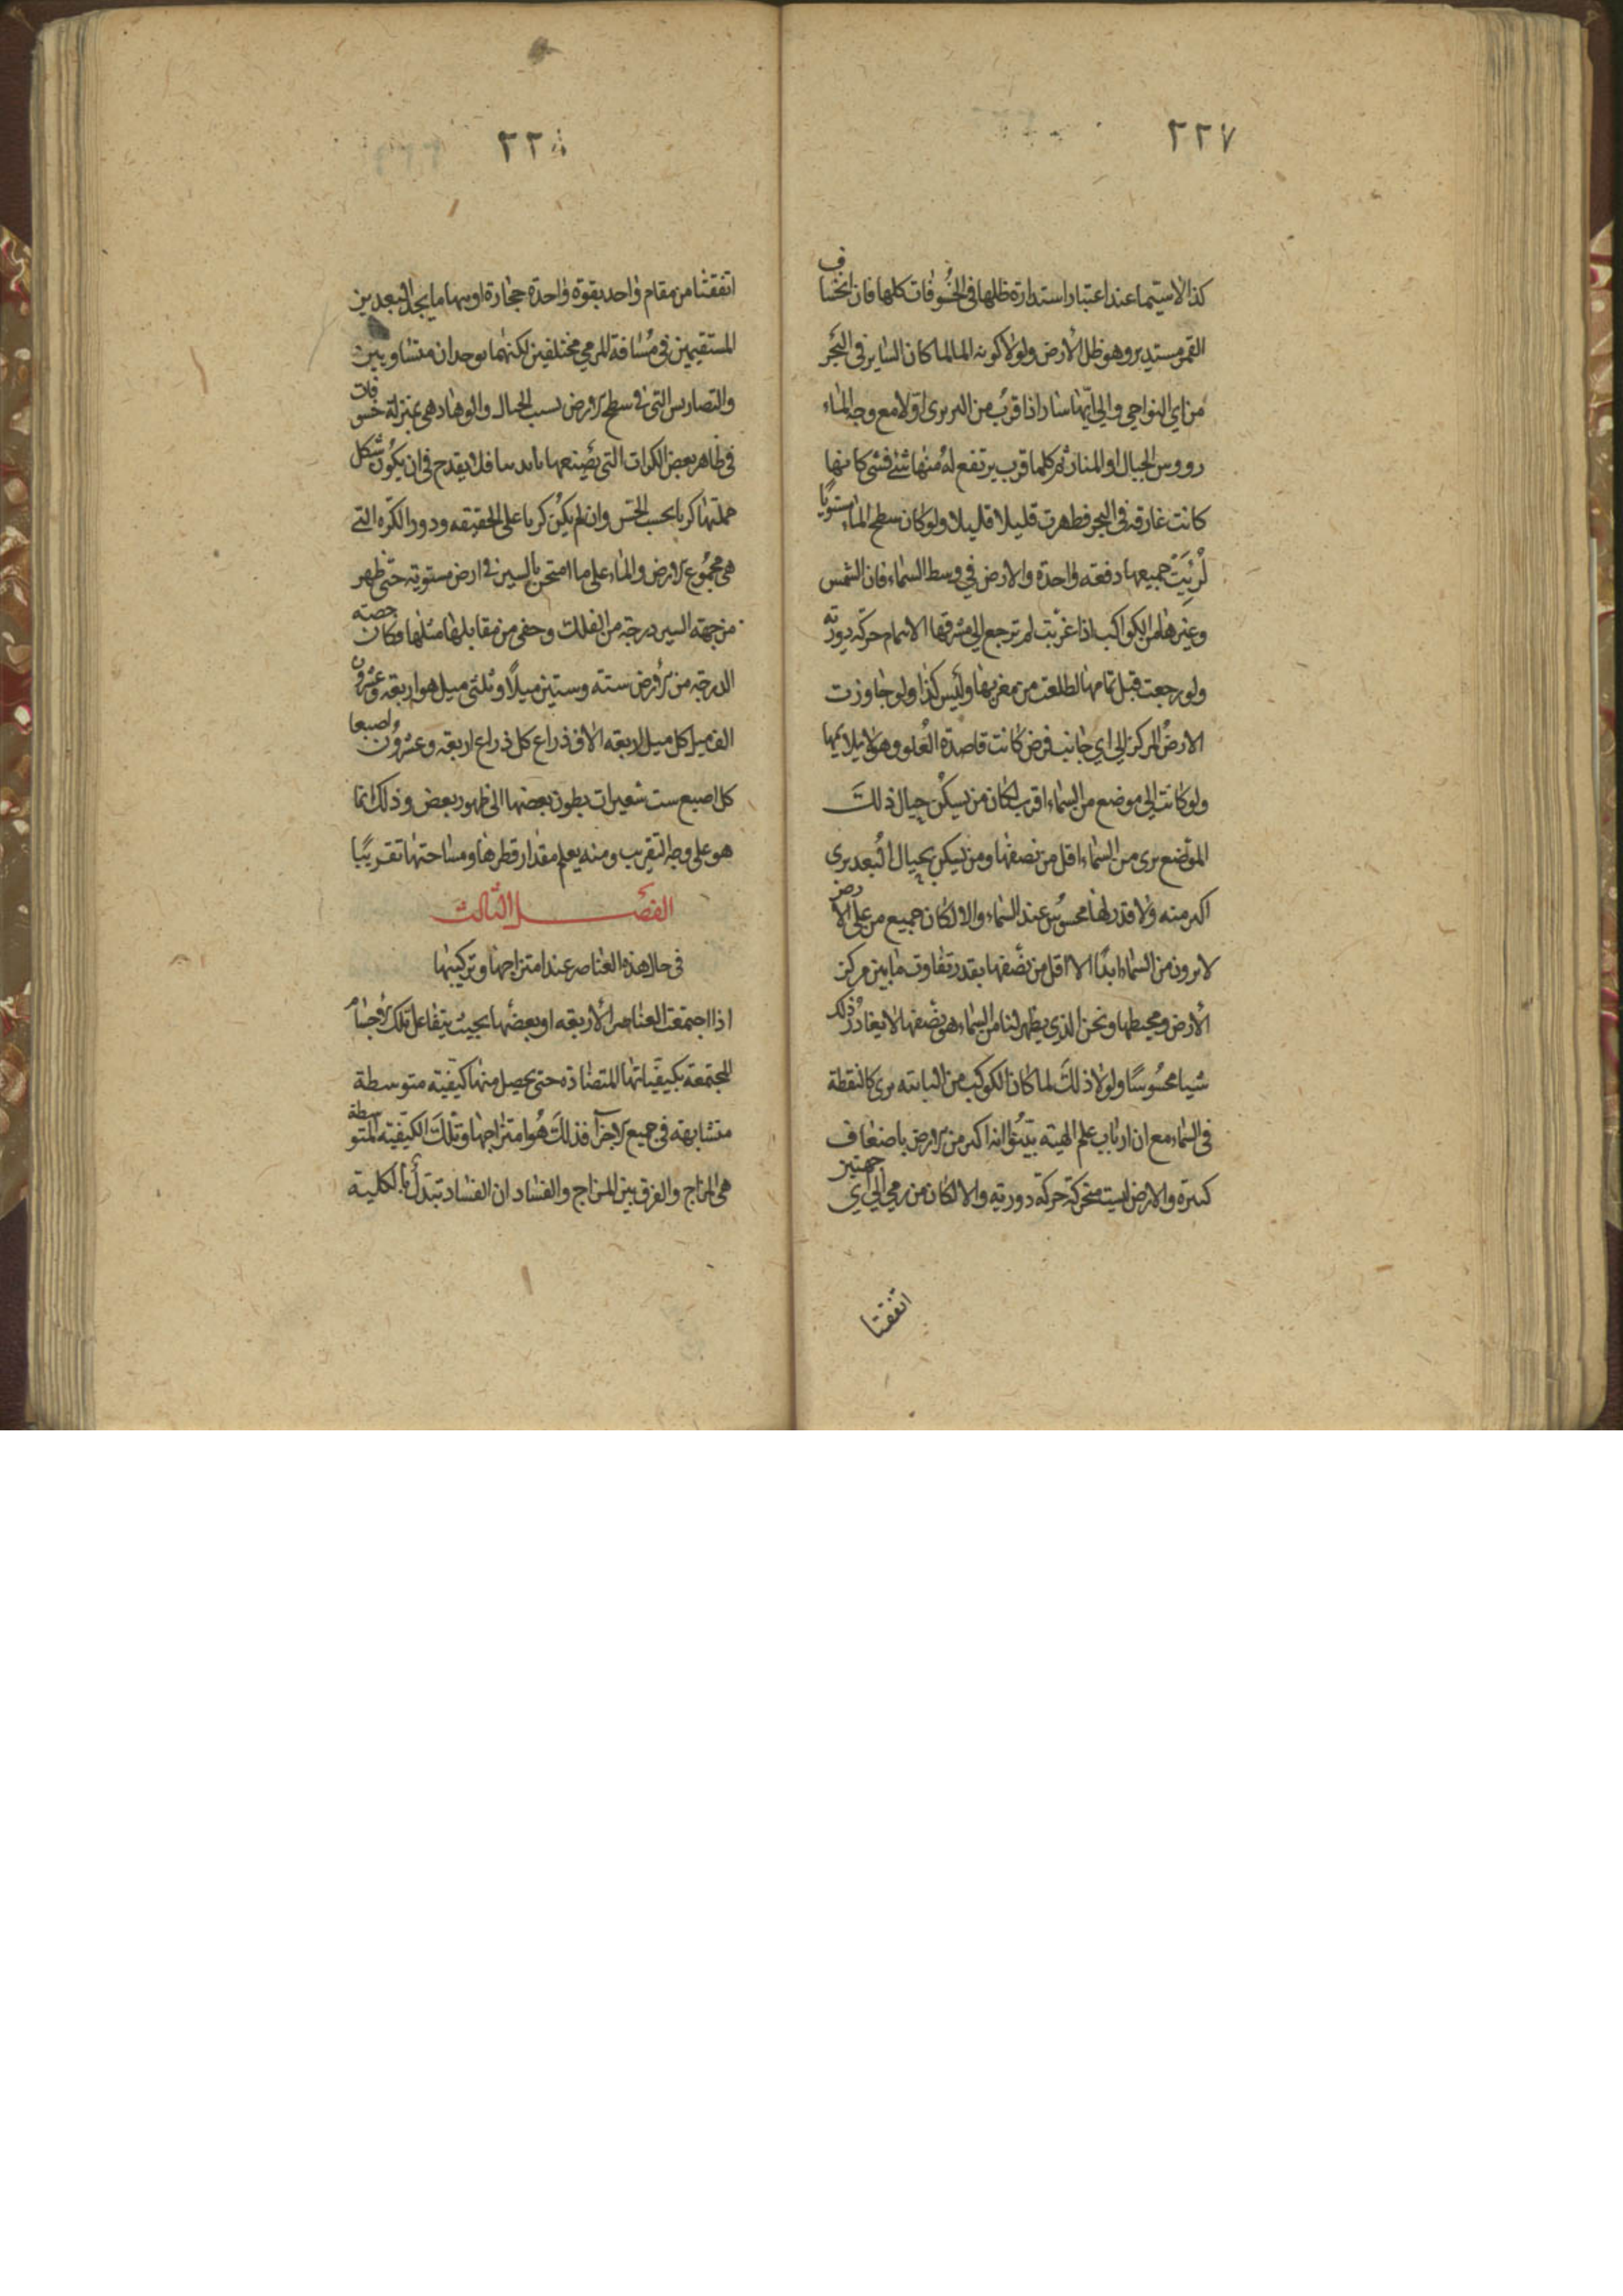 ٢٢٧
كذا لاسيما عند اعتبار استدارة ظلها في الخسوفات كلها فان انخساف
القمر مستدير وهو ظل الأرض ولولا كونه لما كان السائر في البحر
من اي النواحي والى ايها سار اذا قرب من البر يرى اولا مع وجه الماء
رووس الجبال او المنار ثم كلما قرب يرتفع له منها شئ فشئ كانها
كانت غارقه في البحر فظهرت قليلا قليلا ولو كان سطح الماء مستويا
لرئيت جميعها دفعته واحدة والارض في وسط السماء فان الشمس
وغيرها من الكواكب اذا غربت لم ترجع الى مشرقها الا بتمام حركة دورته
ولو رجعت قبل تمامها لطلعت من مغربها وليس كذا ولو جاوزت
الارض المركز الى اي جانب فرض كانت قاصدة العلو وهو لا يلايمها
ولو كانت الى موضع من السماء اقرب لكان من يسكن حيال ذلك
الموضع يرى من السماء اقل من نصفها ومن يسكن بحيال البعد يرى
اكبر منه ولا قدر لها محسوس عند السماء والا لكان جميع من على الارض
لا يرون من السماء ابدا الا اقل من نصفها بقدر تفاوت ما بين مركز
الأرض ومحيطها ونحن الذي يظهر لنا من السماء هو نصفها لا يغادر ذلك
شيا محسوسا ولولا ذلك لما كان الكوكب من الثابته يرى كالنقطة
في السماء مع ان ارباب علم الهيئه انه اكبر من الارض باضعاف
كثيرة والارض ليست متحركة حركة دورية والا لكان من رمي الى اي جهتين
اتفقتا
٢٢٨
اتفقتا من مقام واحد بقوة واحدة حجارة او سهاما يجد البعدين
المستقيمين في مسافة المرمي مختلفين لكنهما يوجدان متساويين
والتضاريس التي في سطح الارض بسبب الجبال والوهاد هي بمنزلة خسوفات
في ظاهر بعض الكرات التي يصنعها فلا يقدح في ان يكون شكل
جملتها كريا بحسب الحس وان لم يكن كريا على الحقيقه ودور الكره التي
هي مجموع الارض والماء على ما امتحن بالسير في ارض مستويه حتى ظهر
من جهته السير درجه من الفلك وخفى من مقابلها مثلها فكان حصته
الدرجه من الارض سته وستين ميلا وثلثي ميل هو اربعه وعشرون
الف ميل كل ميل اربعه الاف ذراع كل ذراع اربعه وعشرون اصبعا
كل اصبع ست شعيرات بطون بعضها الى ظهور بعض وذلك انما
هو على وجه التقريب ومنه يعلم مقدار قطرها ومساحتها تقريبا
الفصل الثالث
في حال هذه العناصر عند امتزاجها وتركيبها
اذا اجتمعت العناصر الأربعه او بعضها بحيث يتفاعل تلك الاجسام
المجتمعة بكيفياتها المتضادة حتى يحصل منها كيفيه متوسطة
متشابهه في جميع الاجزآ فذلك هو امتزاجها وتلك الكيفيه المتوسطة
هي المزاج والفرق بين المزاج والفساد ان الفساد تبدل بالكلية